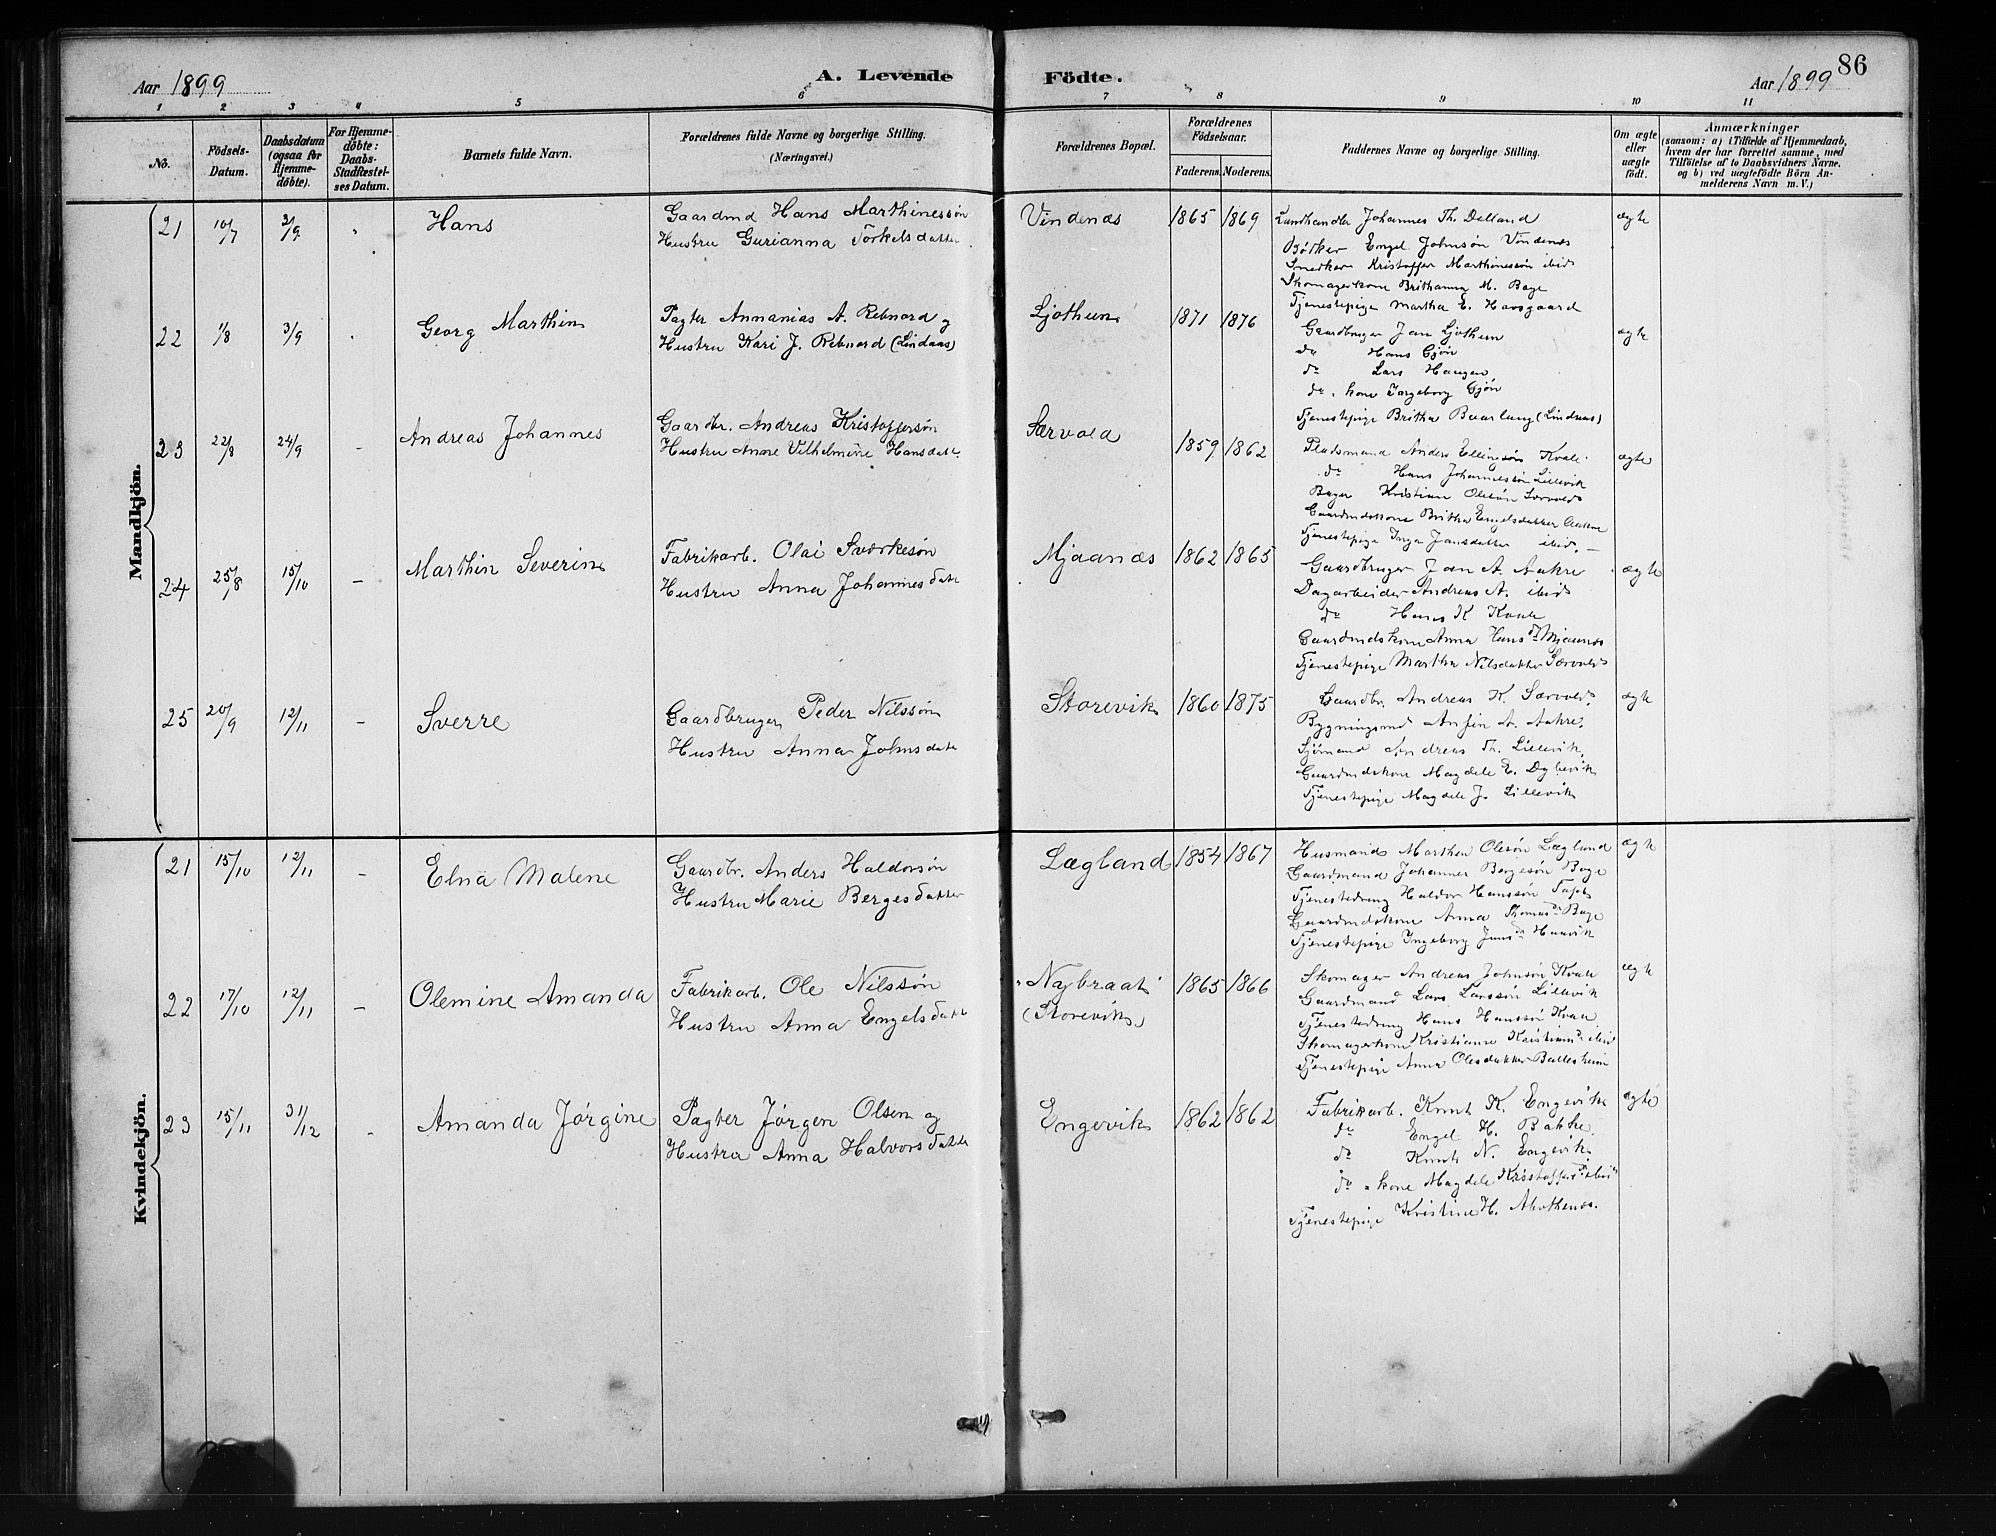 Aar 1899
A. Levende
Födte.
Aar 1899
86
1 2 3 4 5 6 7 8 9 10 11
No.
Födsels-Datum.
Daabsdatum (ogsaa for Hjemme-döbte).
For Hjemme-döbte: Daabs-Stadfæstel-ses Datum.
Barnets fulde Navn.
Forældrenes fulde Navne og borgerlige Stilling. (Næringsvei.)
Forældrenes Bopæl.
Forældrenes Födselsaar.
Faderens. Moderens.
Faddernes Navne og borgerlige Stilling.
Om ægte eller uægte födt.
Anmærkninger
(saasom: a) i Tilfælde af Hjemmedaab,
hvem der har forrettet samme, med
Tilföielse af to Daabsvidners Navne.
og b) ved uægtefödte Börn An-
melderens Navn m. V.)
Mandkjön.
21 10/7 3/9 Hans
Gaardmd Hans Marthinessøn
Hustru Gurianna Torkelsdatter
Vindenæs 1865 1869
Landhandler Johannes Th. Dalland
Bødker Engel Johnsøn Vindenæs
Snedker Kristoffer Marthinessøn ibid
Skomagerkone Brithanna M. Bage
Tjenestepige Martha E. Havsgaard
ægte
22 1/8 3/9 Georg Marthin
Pagter Annanias A. Rebnord og
Hustru Kari J. Rebnord (Lindaas)
Ljothun 1871 1876
Gaardbruger Jan Ljothun
do Hans Gjøn
do Lars Haugen
do kone Ingeborg Gjøn
Tjenestepige Britha Baarlaug (Lindaas)
ægte
23 22/8 24/9 - Andreas Johannes
Gaardbr. Andreas Kristoffersøn
Hustru Anne Vilhelmine Hansdatt.
Særvold 1859 1862
Pladsmand Anders Ellingsøn Kvale
do Hans Johannessøn Lillevik
Bager Kristian Olesøn Særvold
Gaardmdskone Britha Engelsdatter Aakre
Tjenestepige Inga Jansdatter ibid. -
ægte
24 25/8 15/10 - Marthin Severin
Fabrikarb. Olai Sværkesøn
Hustru Anna Johannesdatt
Mjaanæs 1862 1865
Gaardbruger Jan A. Aakre
Dagarbeider Andreas A. ibid
do Hans K Kvale
Gaardmdskone Anna Hansdr Mjaanæs
Tjenestepige Martha Nilsdatter Særvold
ægte
25 20/9 12/11 - Sverre
Gaardbruger Peder Nilssøn
Hustru Anna Johnsdatt
Storevik 1860 1875
Gaardbr. Andreas K. Særvold
Bygningsmd Anfin A. Aakre
Sjømand Andreas Th. Lillevik
Gaardmdskone Magdele E. Dybevik
Tjenestepige Magdele J. Lillevik
ægte
Kvindekjön.
21 15/10 12/11 - Elna Malene
Gaardbr. Anders Haldorsøn
Hustru Marie Bergesdatter
Lægland 1854 1867
Husmand Marthen Olesøn Lægland
Gaardmand Johannes Bergesøn Bage
Tjenestedreng Haldor Hanssøn
Gaardmdskone Anna Thomasdr Bage
Tjenestepige Ingeborg Jansdr Haavik
ægte
22 17/10 12/11 - Olemine Amanda
Fabrikarb. Ole Nilssøn
Hustru Anna Engelsdatt
"Nybraat" 1865 1866
(Storevik)
Skomager Andreas Johnsøn Kvale
Gaardmand Lars Larssøn Lillevik
Tjenestedreng Hans Hanssøn Kvale
Skomagerkone Kristianne Kristiansdr ibid
Tjenestepige Anna Olesdatter Ballesheim
ægte
23 15/11 31/12 - Amanda Jørgine
Pagter Jørgen Olsen og
Hustru Anna Halvorsdatte
Engevik 1862 1862
Fabrikarb. Knut K. Engevik
do Engel H. Bakke
do Knut N. Engevik
do kone Magdele Kristoffersdr ibid
Tjenestepige Kristine H.
ægte